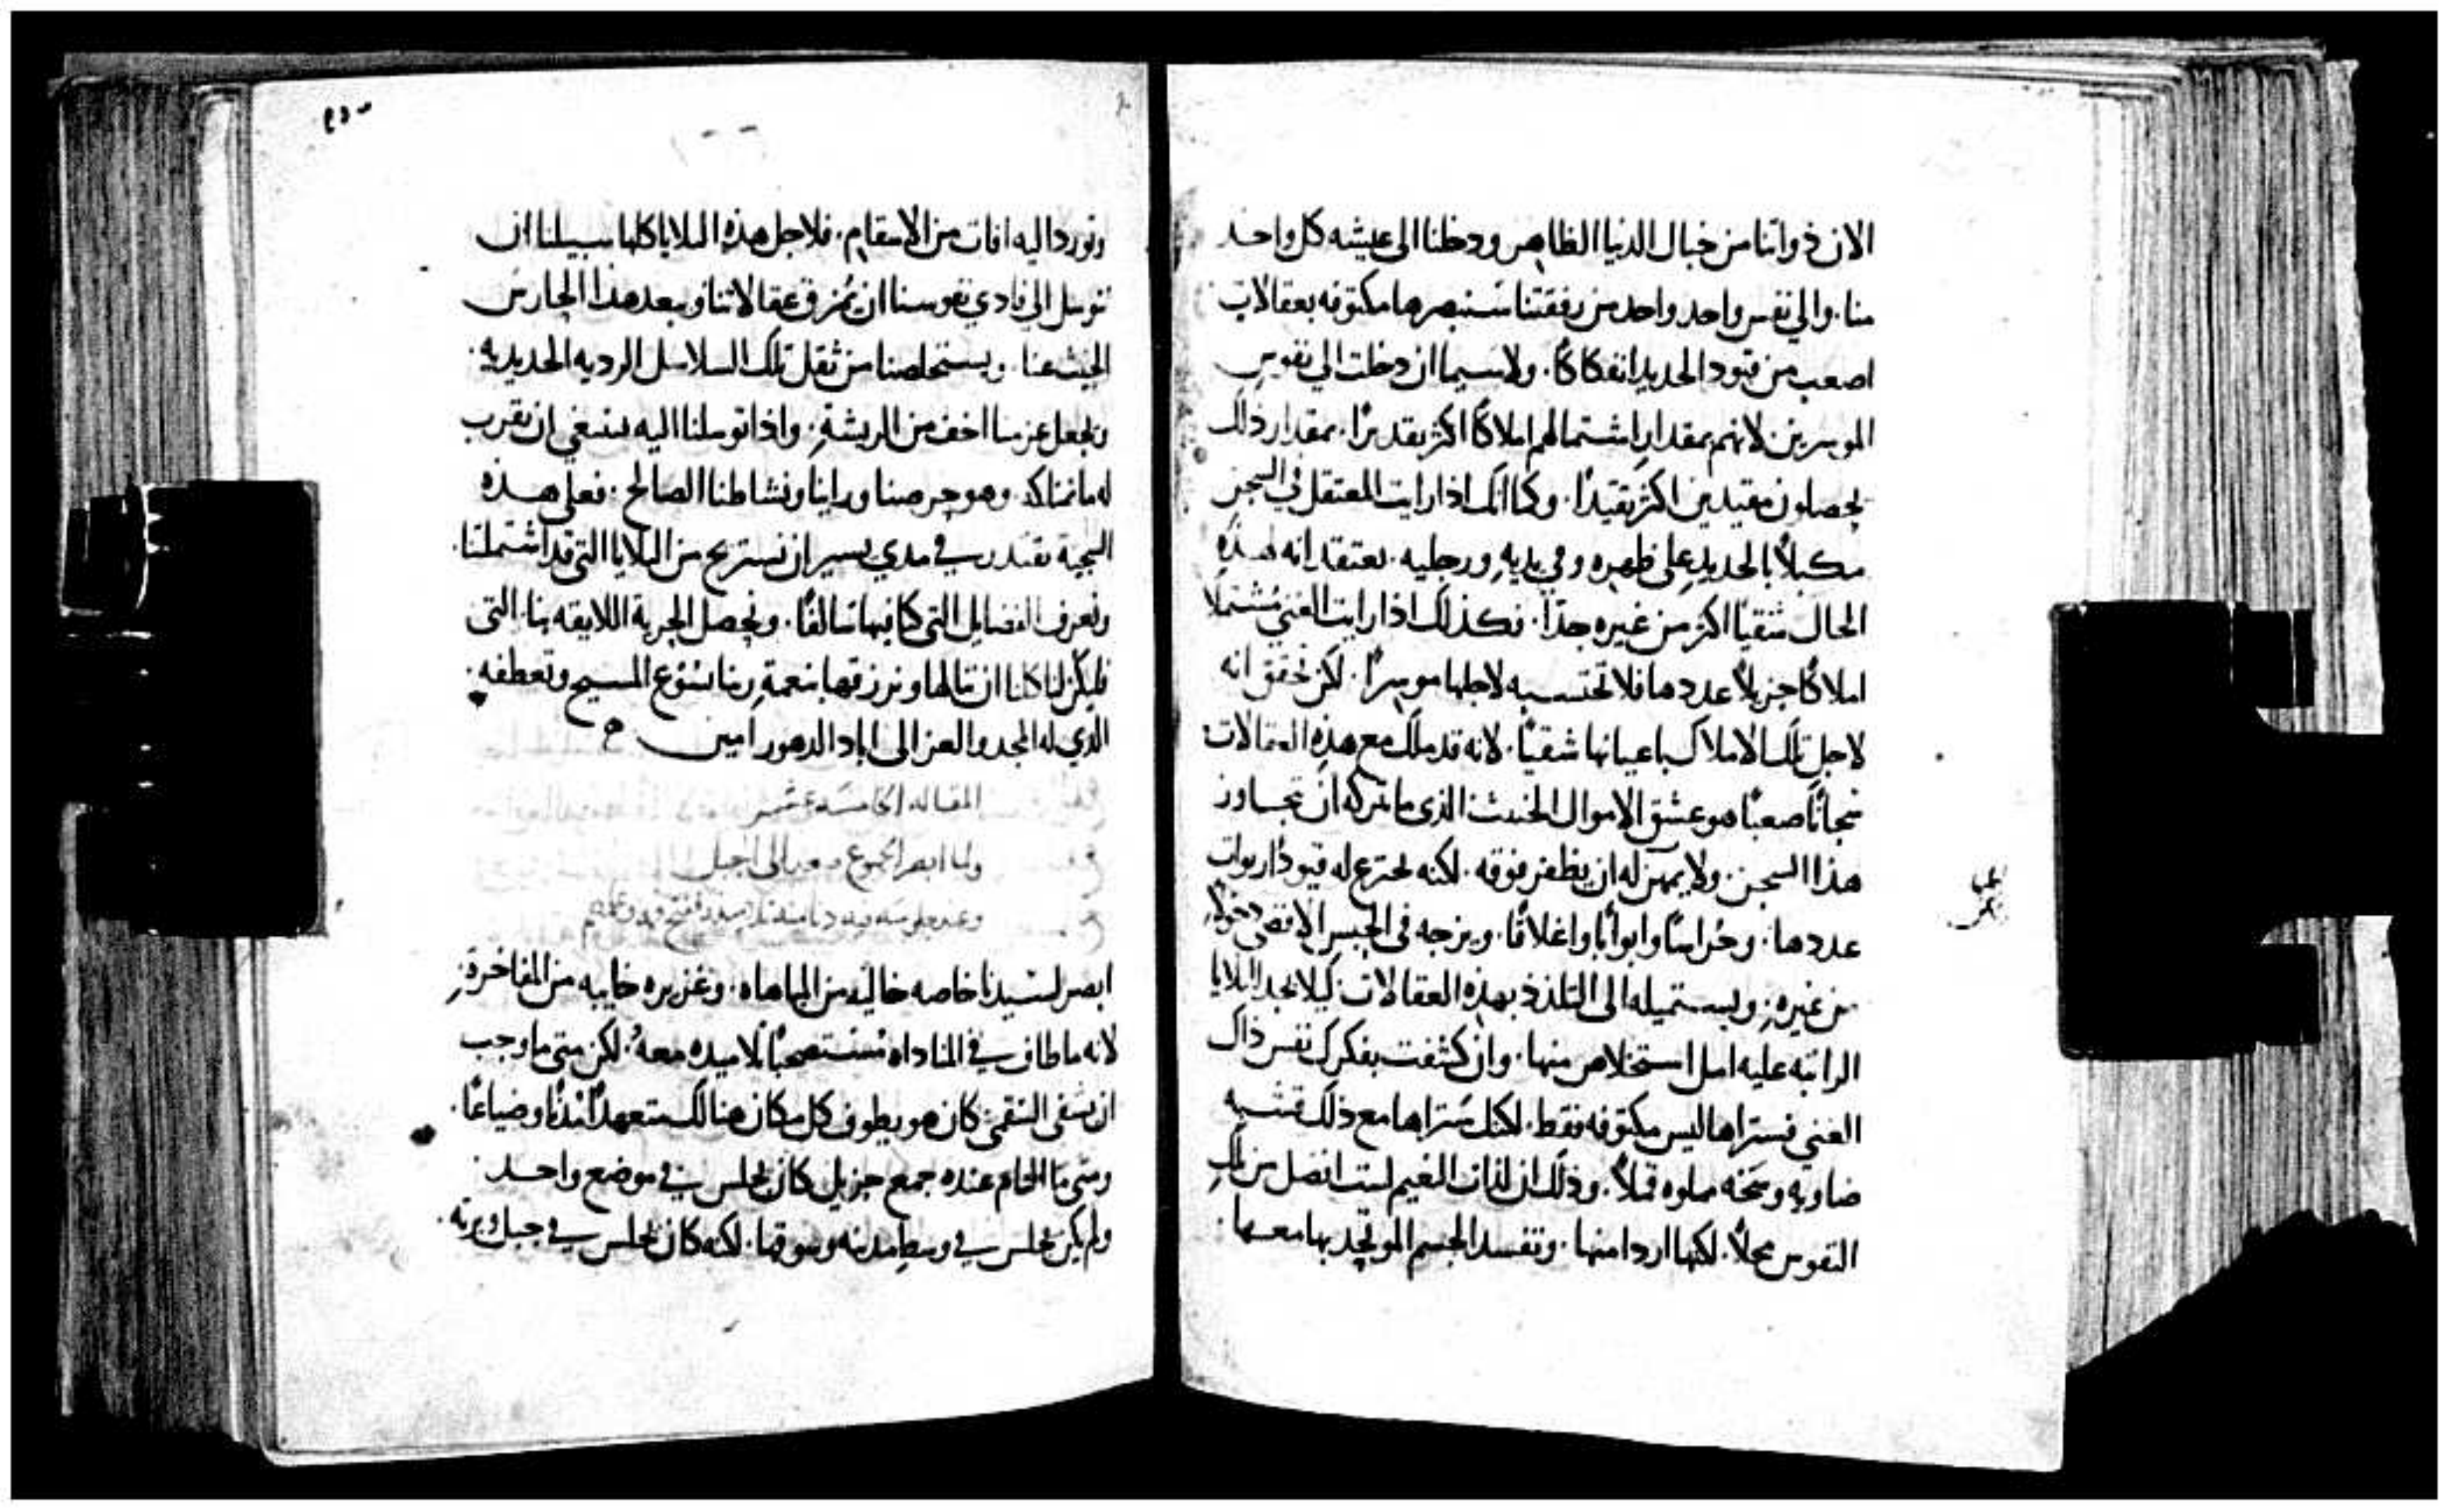 الان ذواتنا من خيال الدنيا الظاهر ودخلنا الى عيشه كل واحد
منا. والى نفس واحد واحد من رفقتنا سنبصرها مكتوفه بعقالات
اصعب من قيود الحديد انفكاكًا. ولاسيما ان دخلت الي نفوس
الموسرين. لانهم بمقدار اشتمالهم املاكًا اكثر بقديرًا. بمقدار ذلك
يحصلون مقيدين اكثر تقيدًا. وكما انك اذا رايت المعتقل في السجن
مكبلاً بالحديد على ظهره وفي يديه ورجليه. تعتقد انه لهذه
الحال شقيًا اكثر من غيره جدًا. فكذلك اذا رايت الغني مُشتملا
املاكًا جزيلاً عددها فلا تحتسبه لاجلها موسرًا. لكن تحقق انه
لاجل تلك الاملاك باعيانها شقيًا. لانه قد ملك مع هذه العقالات
سجانًا صعبًا هو عشق الاموال الخبيث الذي ما تركه ان يتجاوز
هذا السجن. ولا يمكن له ان يظفر فوقه. لكنه يخترع له قيودًا ربوات
عددها. وحُراسًا وابوابًا واغلاقًا. ويزجه في الحبس الاقصى دخولاً
من غيره. ويستميله الى التلذذ بهذه العقالات كيلا يجد البلايا
الراتبه عليه امل استخلاص منها. وان كشفت بفكرك نفس ذاك
الغني فستراها ليس مكتوفه فقط. لكنك ستراها مع ذلك قشبه
ضاويه وسخه مملوه قملاً. وذلك ان لذات النعيم ليست افضل من تلك
النفوس محلاً. لكنها اردا منها. وتفسد الجسم الموتحد بها معها
وتورد اليه افات من الاسقام. فلاجل هذه البلايا كلها سبيلنا ان
نتوسل الي فادي نفوسنا ان يمزق عقالاتنا ويبعد هذا الحارس
الخبيث عنا. ويستخلصنا من ثقل تلك السلاسل الرديه الحديديه.
ويجعل عزمنا اخف من الريشة. واذا توسلنا اليه ينبغي ان نقرب
له ما نمتلكه وهو حرصنا وراينا ونشاطنا الصالح. فعلى هذه
السجية نقتدر في مدي يسير ان نستريح من البلايا التي قد اشتملتنا.
ونعرف الفضايل التي كنا فيها سالفًا. ونحصل الحرية اللايقه بنا. التي
فليكن لنا كلنا ان ننالها ونرزقها بنعمة ربنا يسوع المسيح وتعطفه.
الذي له المجد والعز الى اباد الدهور امين
المقاله الخامسه عشر
ولما ابصر الجموع صعد الى الجبل
وعند جلوسه فيه دنا منه تلاميذه ففتح فمه وعلمهم
ابصر لسيدنا خاصه خاليه من المباهاه. وغزيره خايبه من المفاخرة.
لانه ما طاف في المناداه مُستصحبًا تلاميذه معهُ. لكن متى ما وجب
ان يشفى السقمى كان هو يطوف كل مكان هنالك متعهدًا مُدنًا وضياعًا.
ومتى ما التام عنده جمع جزيل كان يجلس في موضع واحد
ولم يكن يجلس في وسط مدينه وسوقها. لكنه كان يجلس في جبل وبريه.